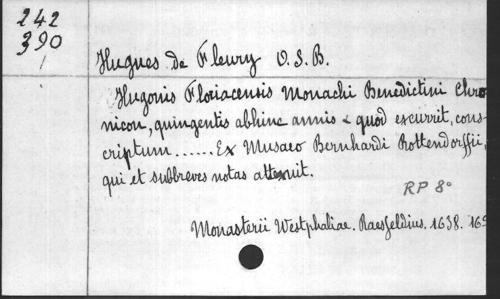 242
390
Hugues de Fleury O.S.B.
Hugonis Floriacensis Monachi Benedictini Chro
nicon, quingentis abhinc annis & quod excurrit, cons-
criptum...... Ex Musaeo Bernhardi Rottendorffii,
qui et subbreves notas attexuit.
RP 8°
Monasterii Westphaliae. Raesfeldius. 1638. 163